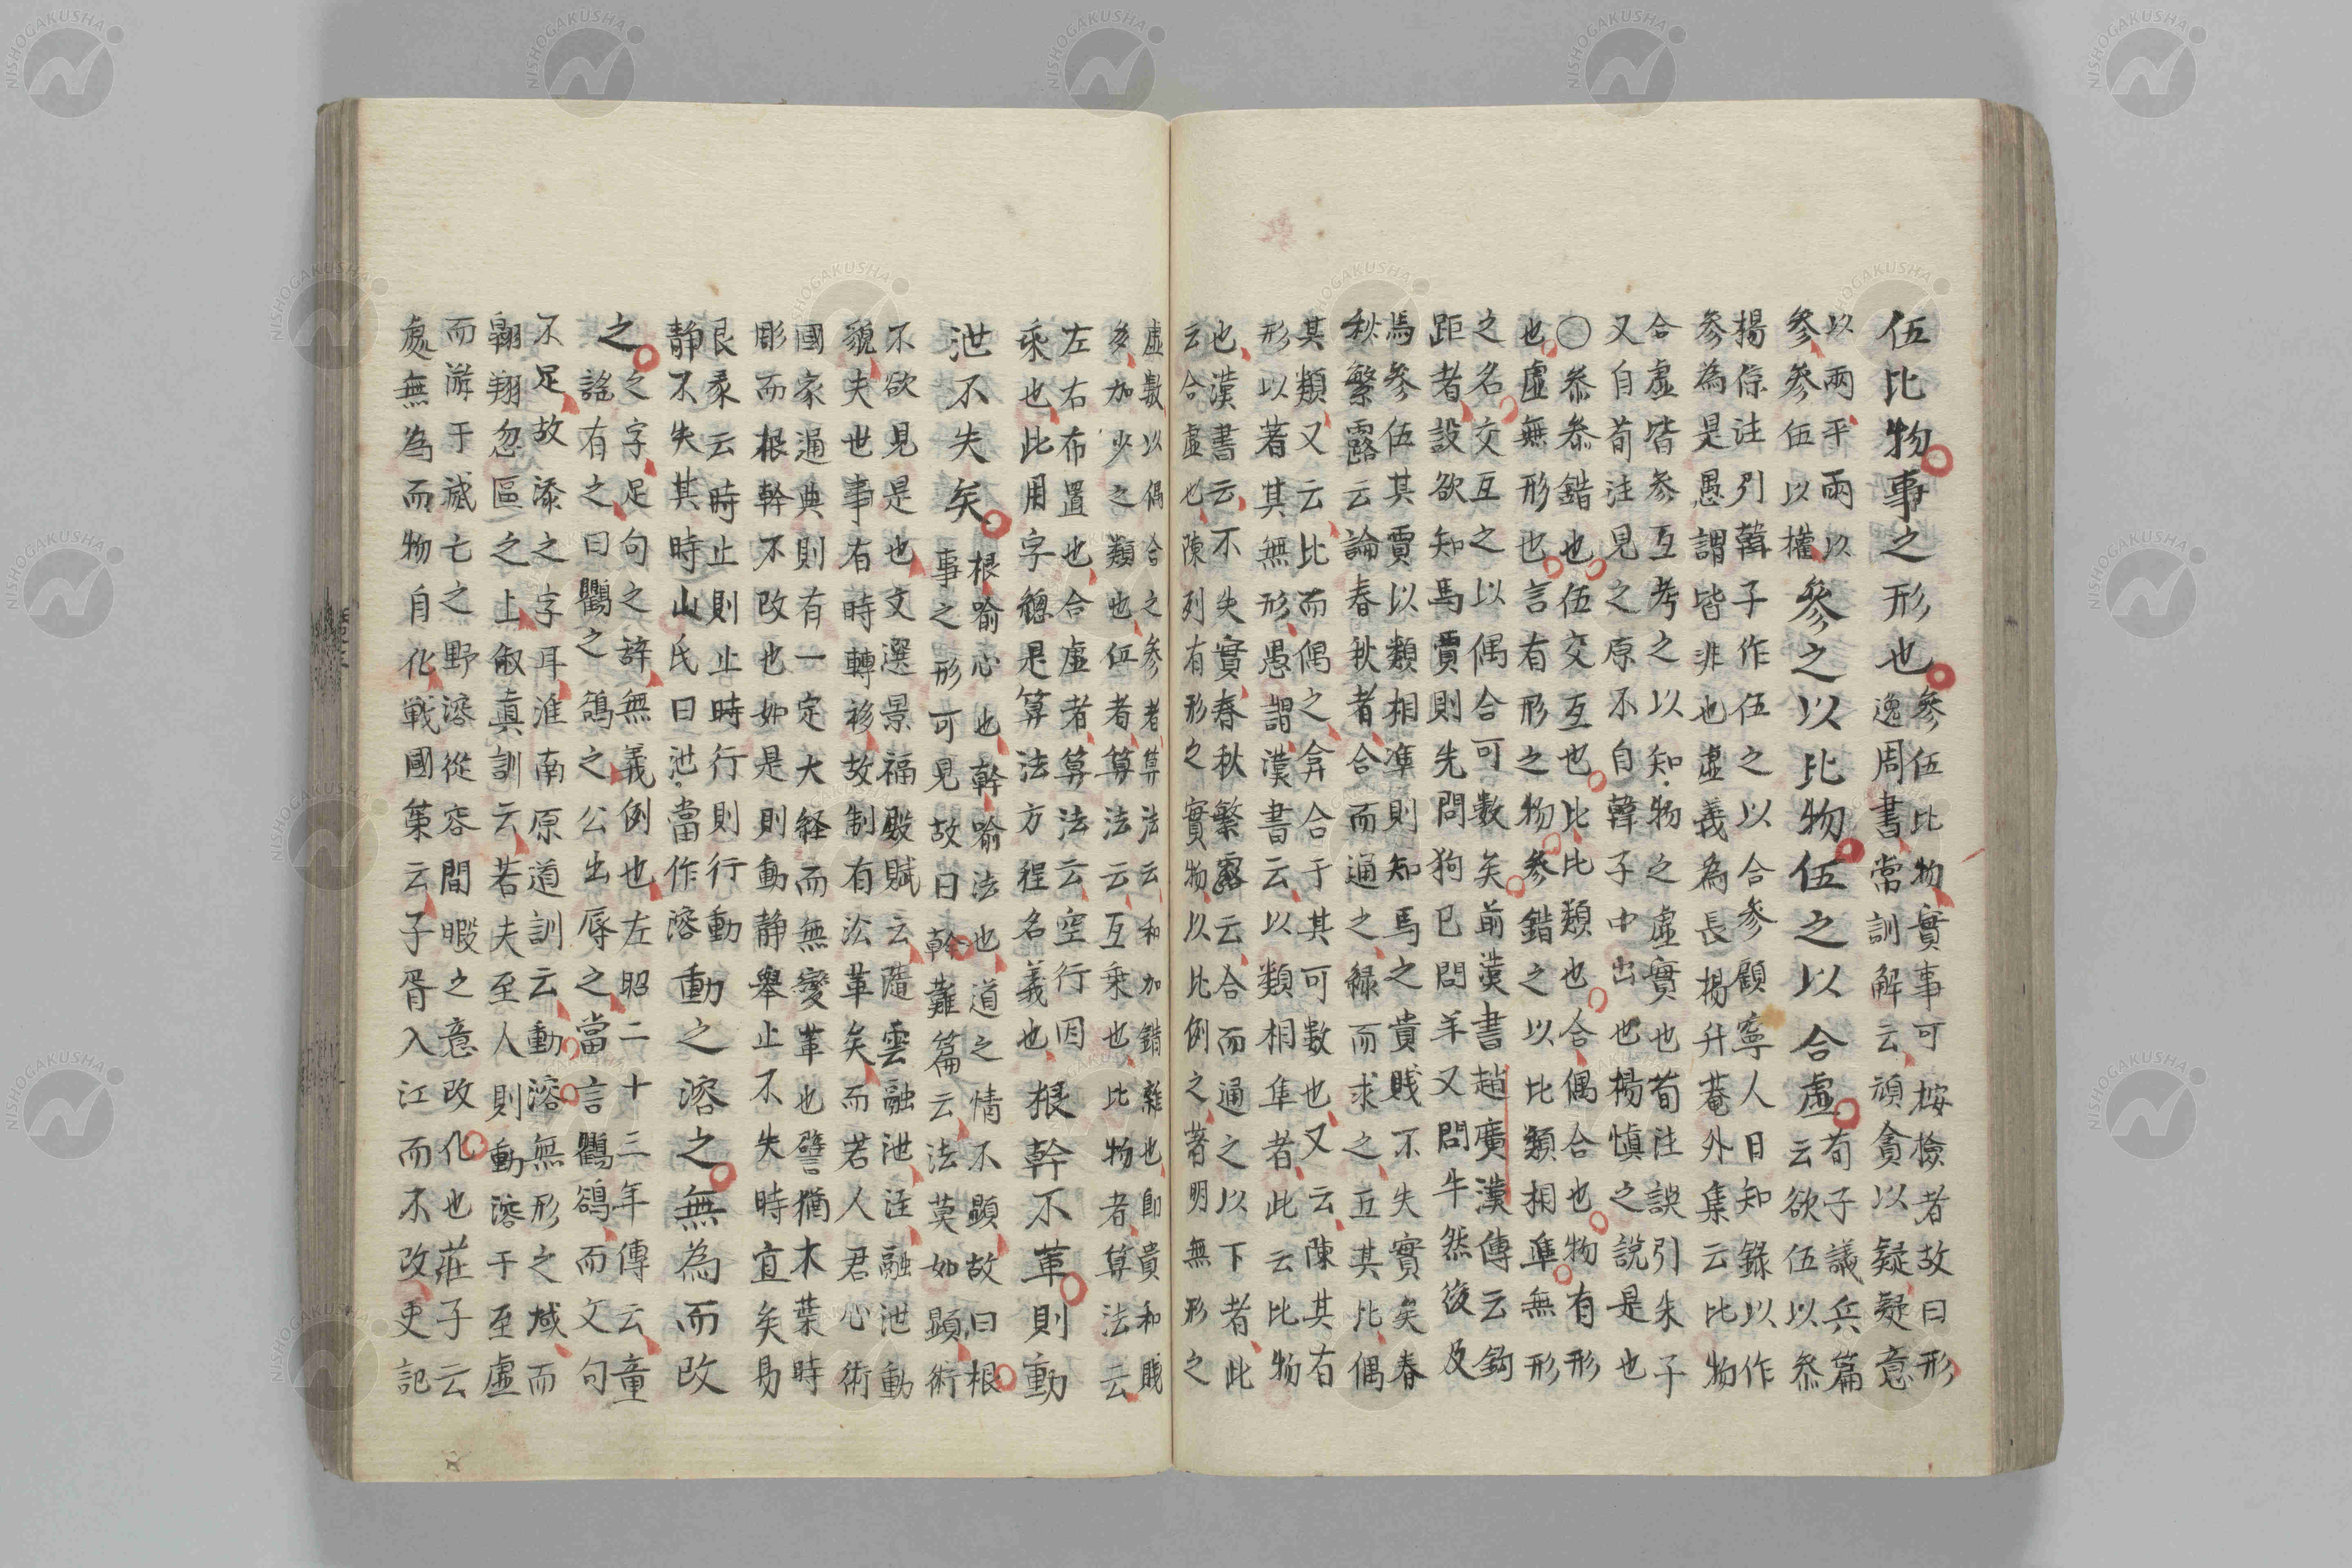 伍比物事之形也
參伍比物實事可按檢者故曰形
逸周書常訓解云頑貪以疑疑意
以兩平兩以
參參伍以權
參之以比物伍之以合虛
荀子議兵篇
云欲伍以叅
楊倞注引韓子作伍之以合參顧寧人日知錄以作
參為是愚謂皆非也虛義為長楊升菴外集云比物
合虛皆參互考之以知物之虛實也荀注談引朱子
又自荀注見之原不自韓子中出也楊慎之說是也
〇叅叅錯也伍交互也比比類也合偶合也物有形
也虛無形也言有形之物參錯之以比類相準無形
之名交互之以偶合可數矣前漢書趙廣漢傳云鈎
距者設欲知馬賈則先問狗已問羊又問牛然後及
馬參伍其賈以類相準則知馬之貴賤不失實矣春
秋繁露云論春秋者合而通之緑而求之互其比偶
其類又云比而偶之弇合于其可數也又云陳其有
形以著其無形愚謂漢書云以類相隼者此云比物
也漢書云不失實春秋繁露云合而通之以下者此
云合虛也陳列有形之實物以比例之著明無形之
虛數以偶合之參者算法云和加錯雜也即貴和賤
多加少之類也伍者算法云互乘也比物者算法云
左右布置也合虛者算法云空行因
乘也此用字總是算法方程名義也
根幹不革則動
泄不失矣
根喻心也幹喻法也道之情不顯故曰根
事之形可見故曰幹難篇云法莫如顯術
不欲見是也文選景福殿賦云蔭雲融泄注融泄動
貌夫世事有時轉移故制有沿革矣而若人君心術
國家通典則有一定大経而無變革也譬猶木葉時
彫而根幹不改也如是則動静舉止不失時宜矣易
艮彖云時止則止時行則行動
静不失其時山氏曰泄當作溶
動之溶之無為而改
之
之字足句之辞無義例也左昭二十三年傳云童
謠有之曰鸜之鵒之公出辱之當言鸜鵒而文句
不足故添之字耳淮南原道訓云動溶無形之域而
翱翔忽區之上俶真訓云若夫至人則動溶于至虛
而游于滅亡之野溶從容間暇之意改化也莊子云
處無為而物自化戦國策云子胥入江而不改史記
NISHOGAKUSHA